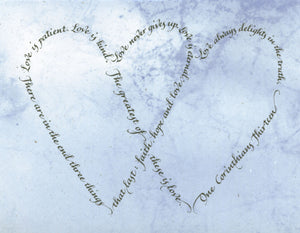 Love is patient. Love is kind.
Love never gives up. Love is eternal.
Love always delights in the truth.
There are in the end three things
that last: faith, hope and love;
The greatest of
these is love.
One Corinthians Thirteen